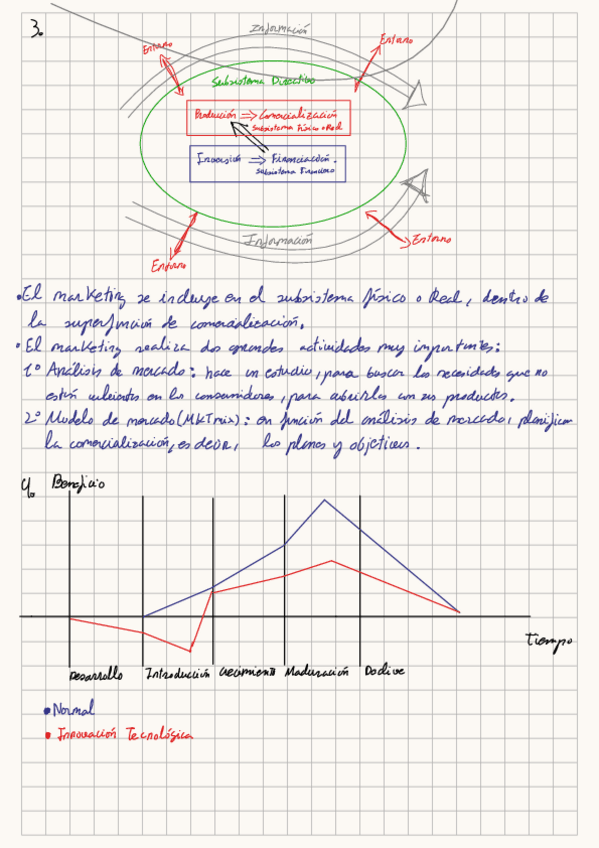 3.
Información
Entorno
Entorno
Subsistema Directivo
Producción => Comercialización
Subsistema Físico o Real
Inversión => Financiación.
Subsistema Financiero
Información
Entorno
Entorno
• El marketing se incluye en el subsistema físico o Real, dentro de
la superfunción de comercialización.
• El marketing realiza dos grandes actividades muy importantes:
1º Análisis de mercado: hace un estudio, para buscar las necesidades que no
están cubiertas en los consumidores, para cubrirlas con sus productos.
2º Modelo de mercado (MKT mix): en función del análisis de mercado, planifican
la comercialización, es decir, los planes y objetivos.
4. Beneficio
Tiempo
Desarrollo Introducción Crecimiento Maduración Declive
• Normal
• Innovación Tecnológica